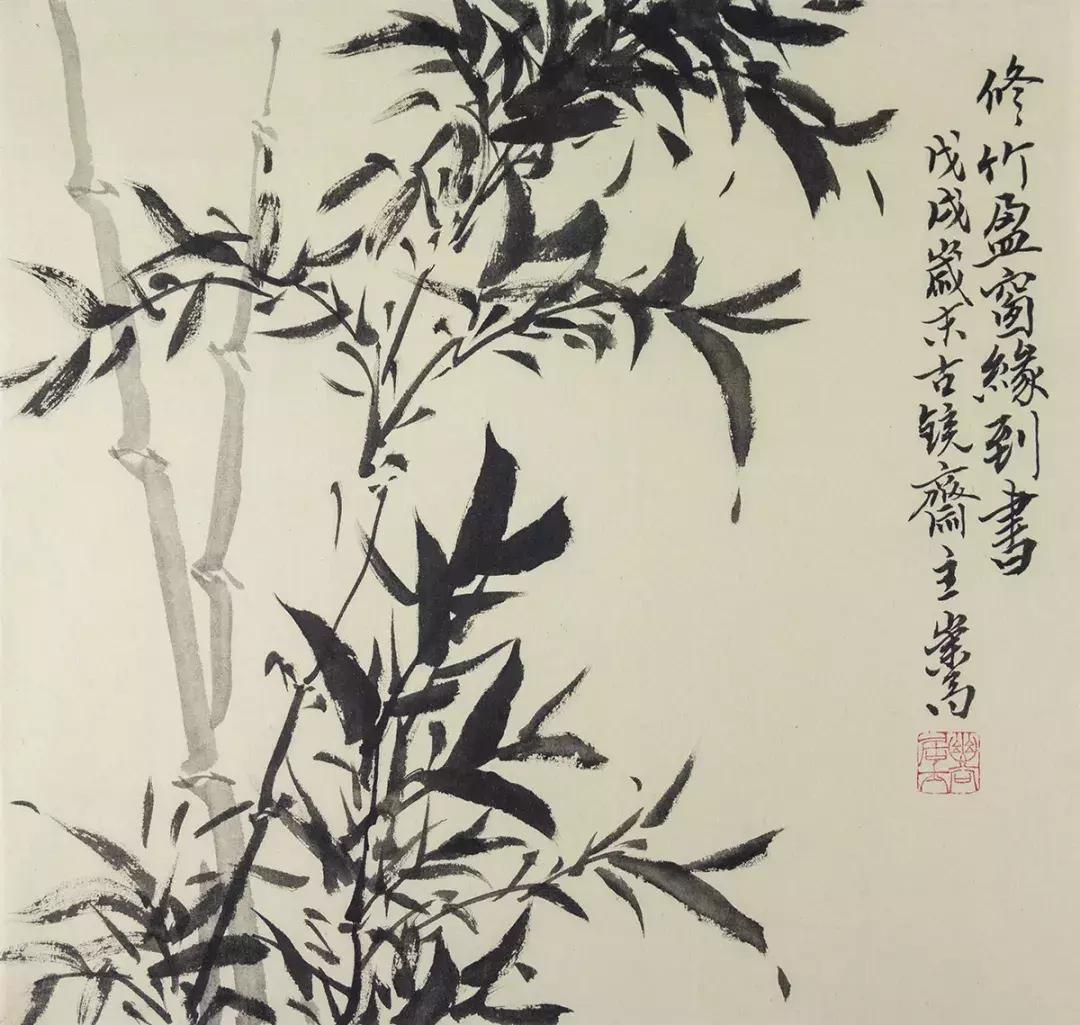 修竹盈窗緣到書
戊戌歲末古鏡齋主嵩